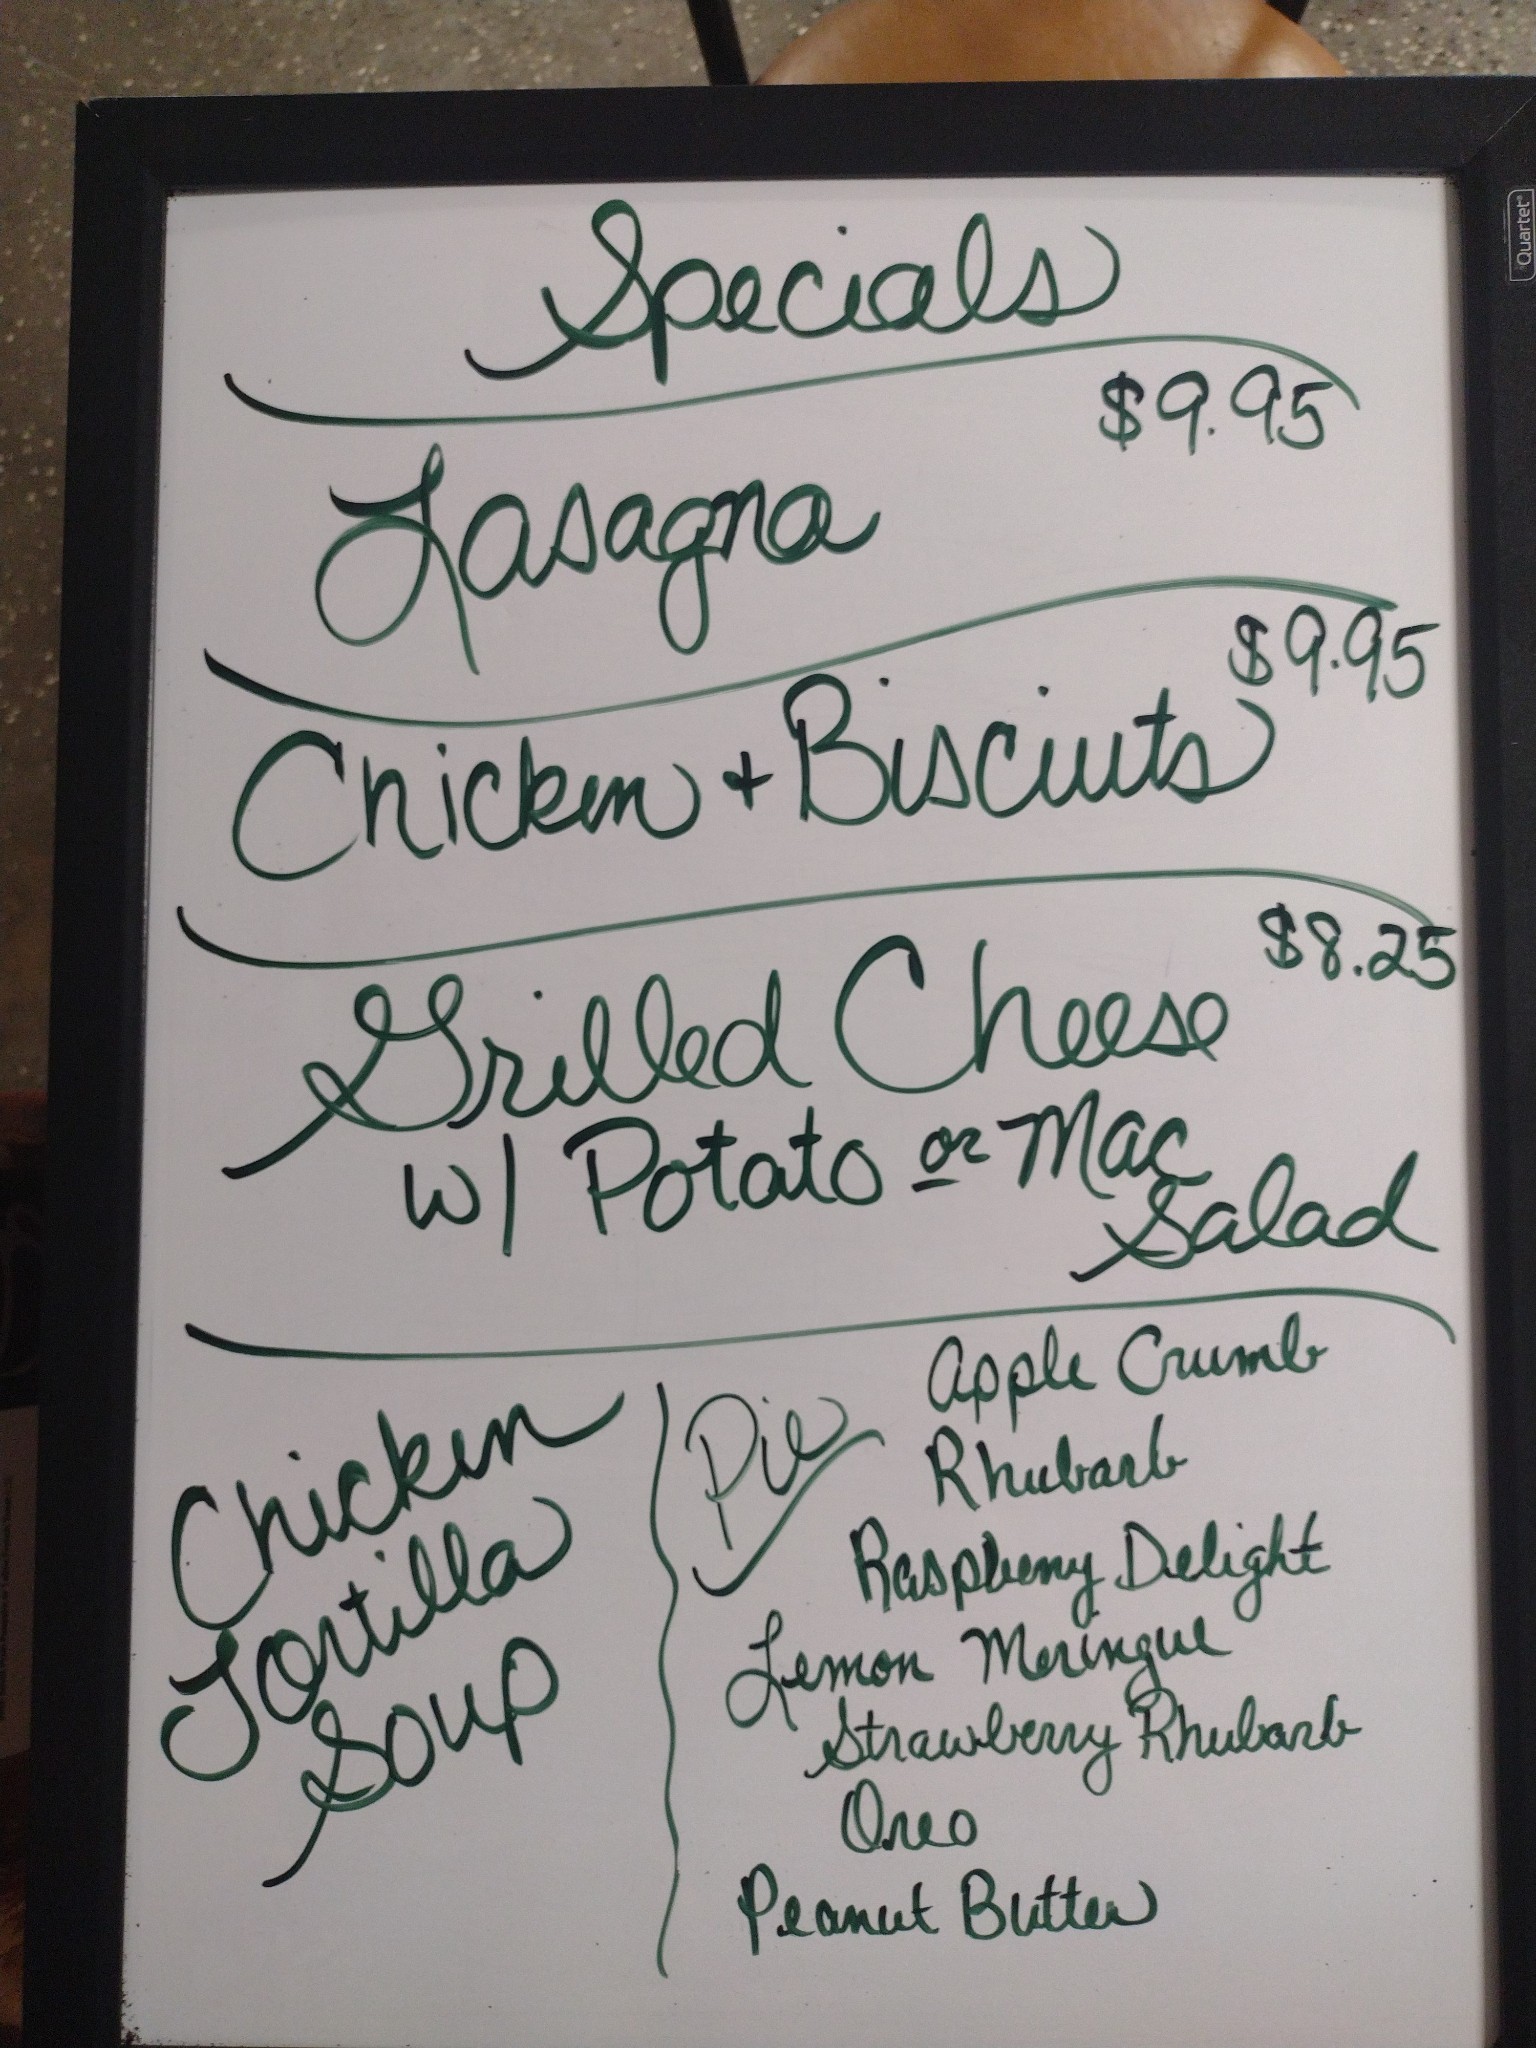 Quartet
Specials
$9.95
Lasagna
$9.95
Chicken + Bisciuts
$8.25
Grilled Cheese
w/ Potato or Mac
Salad
Chicken
Tortilla
Soup
Pie
Apple Crumb
Rhubarb
Raspberry Delight
Lemon Meringue
Strawberry Rhubarb
Oreo
Peanut Butter